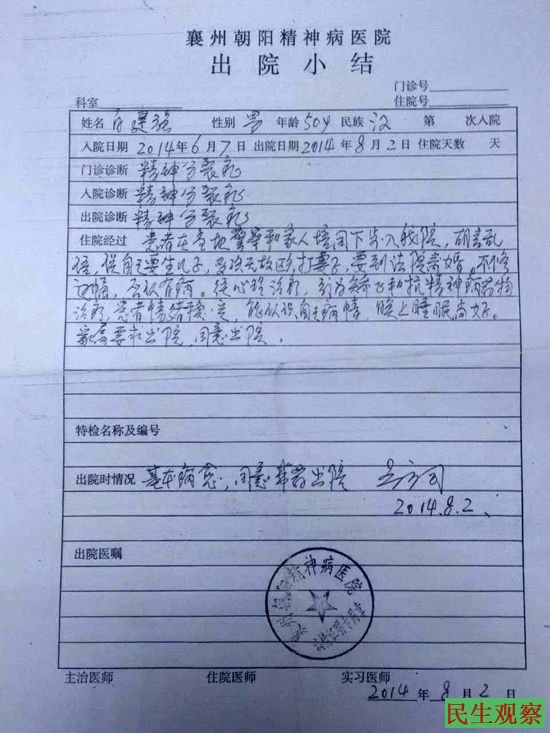 襄州朝阳精神病医院
出院小结
门诊号
科室 住院号
姓名 性别 男 年龄 50岁 民族 汉 第 次入院
入院日期 2014年6月7日 出院日期 2014年8月2日 住院天数 天
门诊诊断 精神分裂症
入院诊断 精神分裂症
出院诊断 精神分裂症
住院经过 患者在当地警察和家人陪同下步入我院，胡言乱
语，说自己要生儿子，多次无故殴打妻子，要到法院离婚。不修
边幅，否认有病。经心理治疗，行为和抗精神病药物
治疗，患者情绪稳定，能认识自己病情，晚上睡眠尚好。
家属要求出院，同意出院。
特检名称及编号
出院时情况 基本病愈，同意带药出院
2014.8.2.
出院医嘱
襄州朝阳精神病医院
主治医师 住院医师 实习医师
2014年8月2日
民生观察